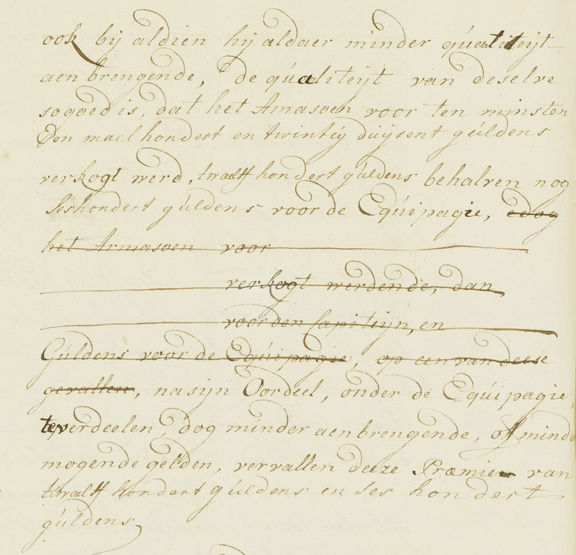 ook bij aldien hij aldaer minder quatiteijt
aenbrengende, de qualiteijt van deselve
sogoed is, dat het Armasoen voor ten minsten
Een maelhondert en twintig duijsent guldens
verkogt werd, twaelff hondert guldens behalven nog
seshondert guldens voor de Equipagie, edog
het Armasoen voor
verkogt werdende, dan
voor den Capiteijn, en
Guldens voor de Equipagie, op een van deese
gevallen, na sijn Oordeel, onder de Equipagie,
te verdeelen, dog minder aenbrengende, off mind
mogende gelden, vervallen deeze Præmie van
twaelff hondert guldens en ses hondert
guldens